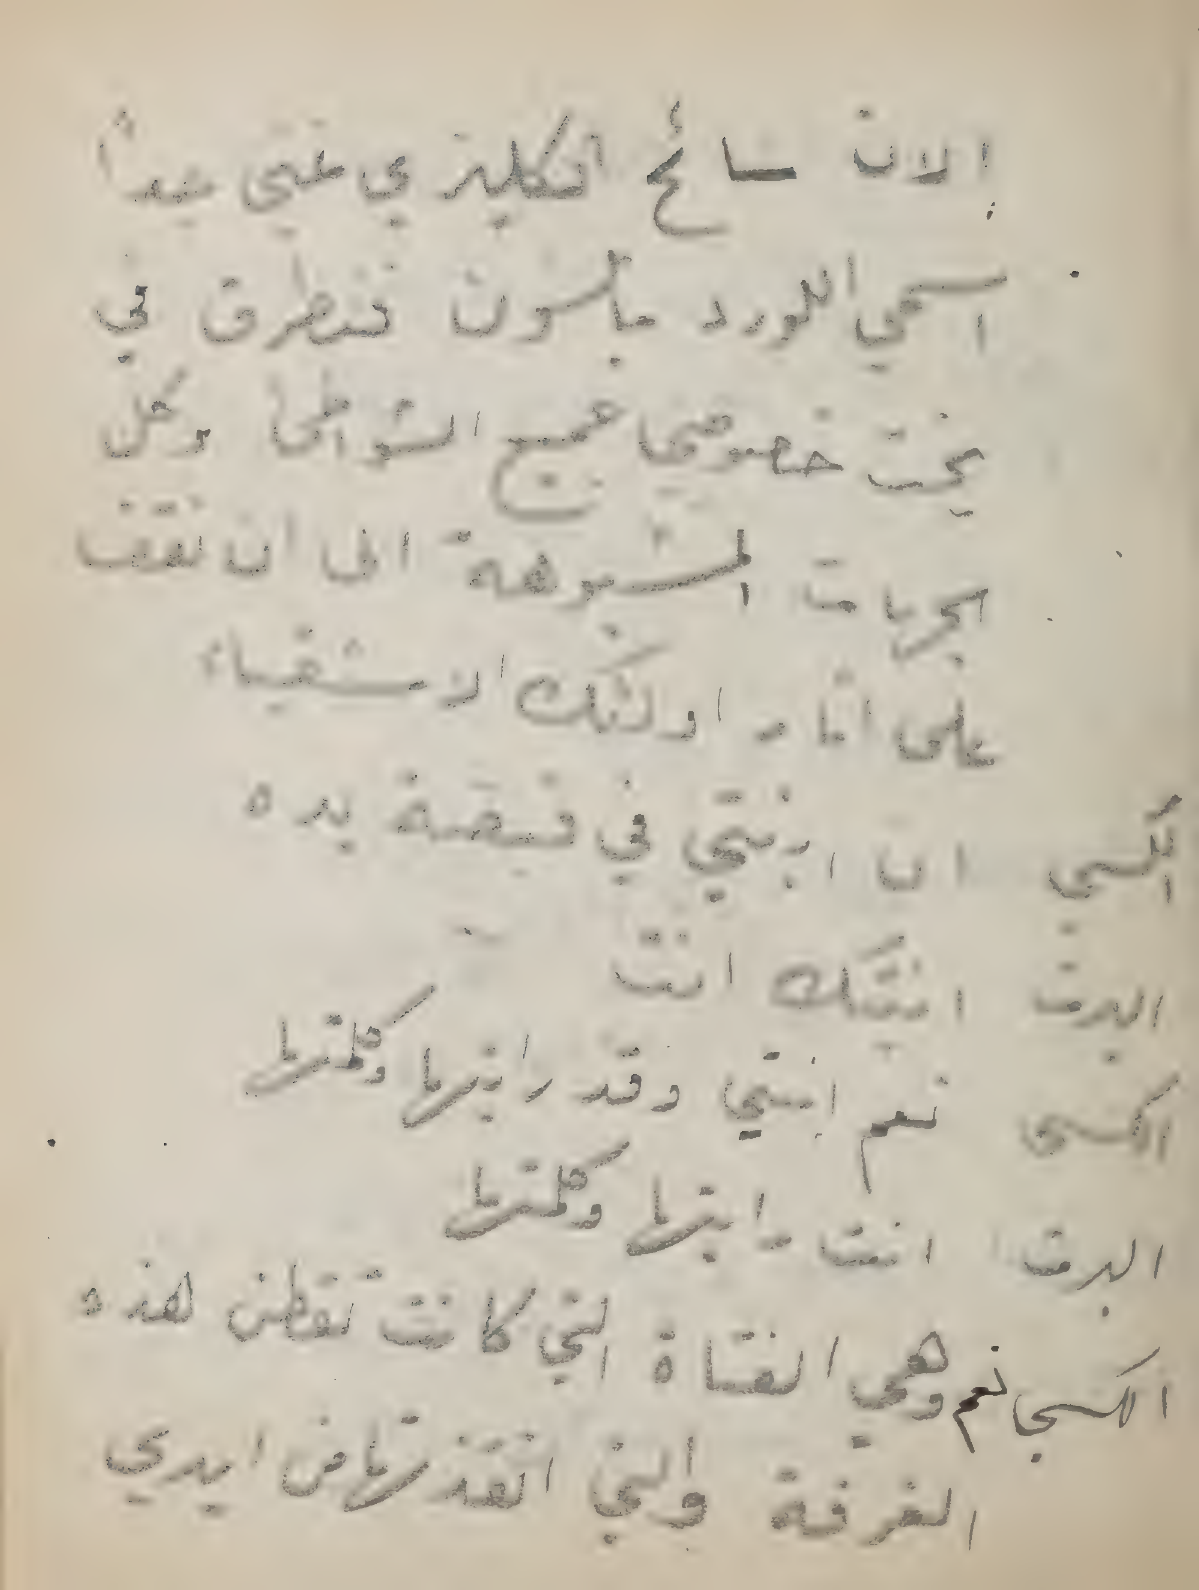 الان سائح انكليزي غني جداً
اسمي اللورد نيلسون فنطرق في
يخت خصوصي جميع الشواطئ وكل
الجريات المشبوهة الى ان نقف
على اثار اولئك الاشقياء
الكسي ان ابنتي في قبضة يده
البرت ابنتك انت
الكسي نعم ابنتي وقد رايتها وكلمتها
البرت انت رايتها وكلمتها
الكسي نعم وهي الفتاة التي كانت تقطن هذه
الغرفة والتي انقذتها من ايدي